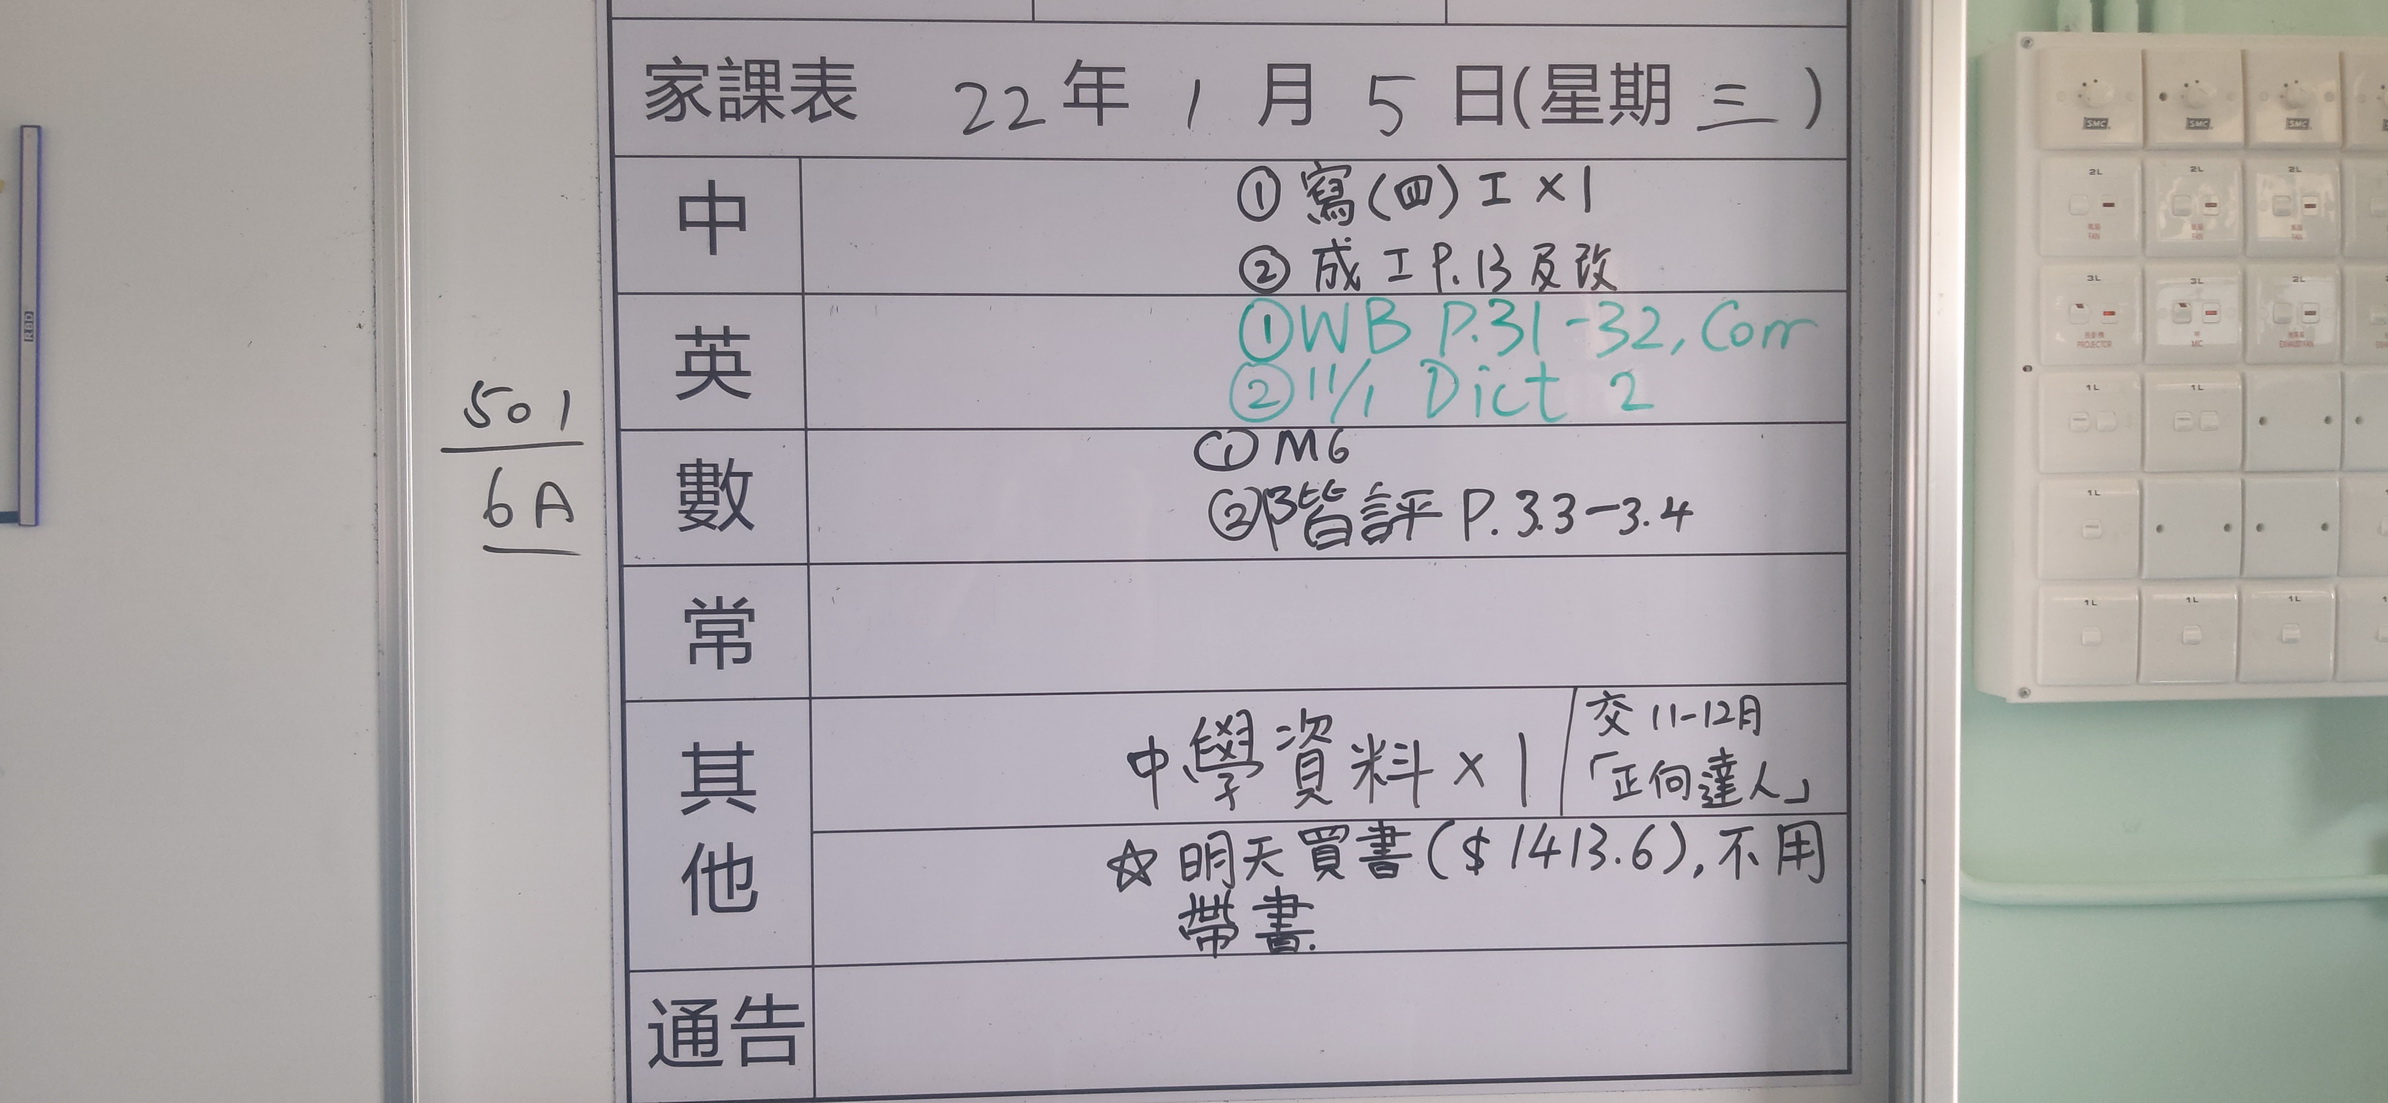 家課表 22年1月5日(星期三)
中
① 寫(四)工×1
② 成工P.13及改
英
①WB P.31-32, Corr
②11/1 Dict 2
數
①M6
②階評 P.3.3-3.4
常
其他
中學資料×1
交 11-12月
「正向達人」
☆ 明天買書($1413.6), 不用
帶書.
通告
501
6A
SMC
SMC
SMC
2L
2L
2L
FAN
FAN
FAN
3L
3L
2L
PROJECTOR
MIC
1L
1L
1L
1L
1L
1L